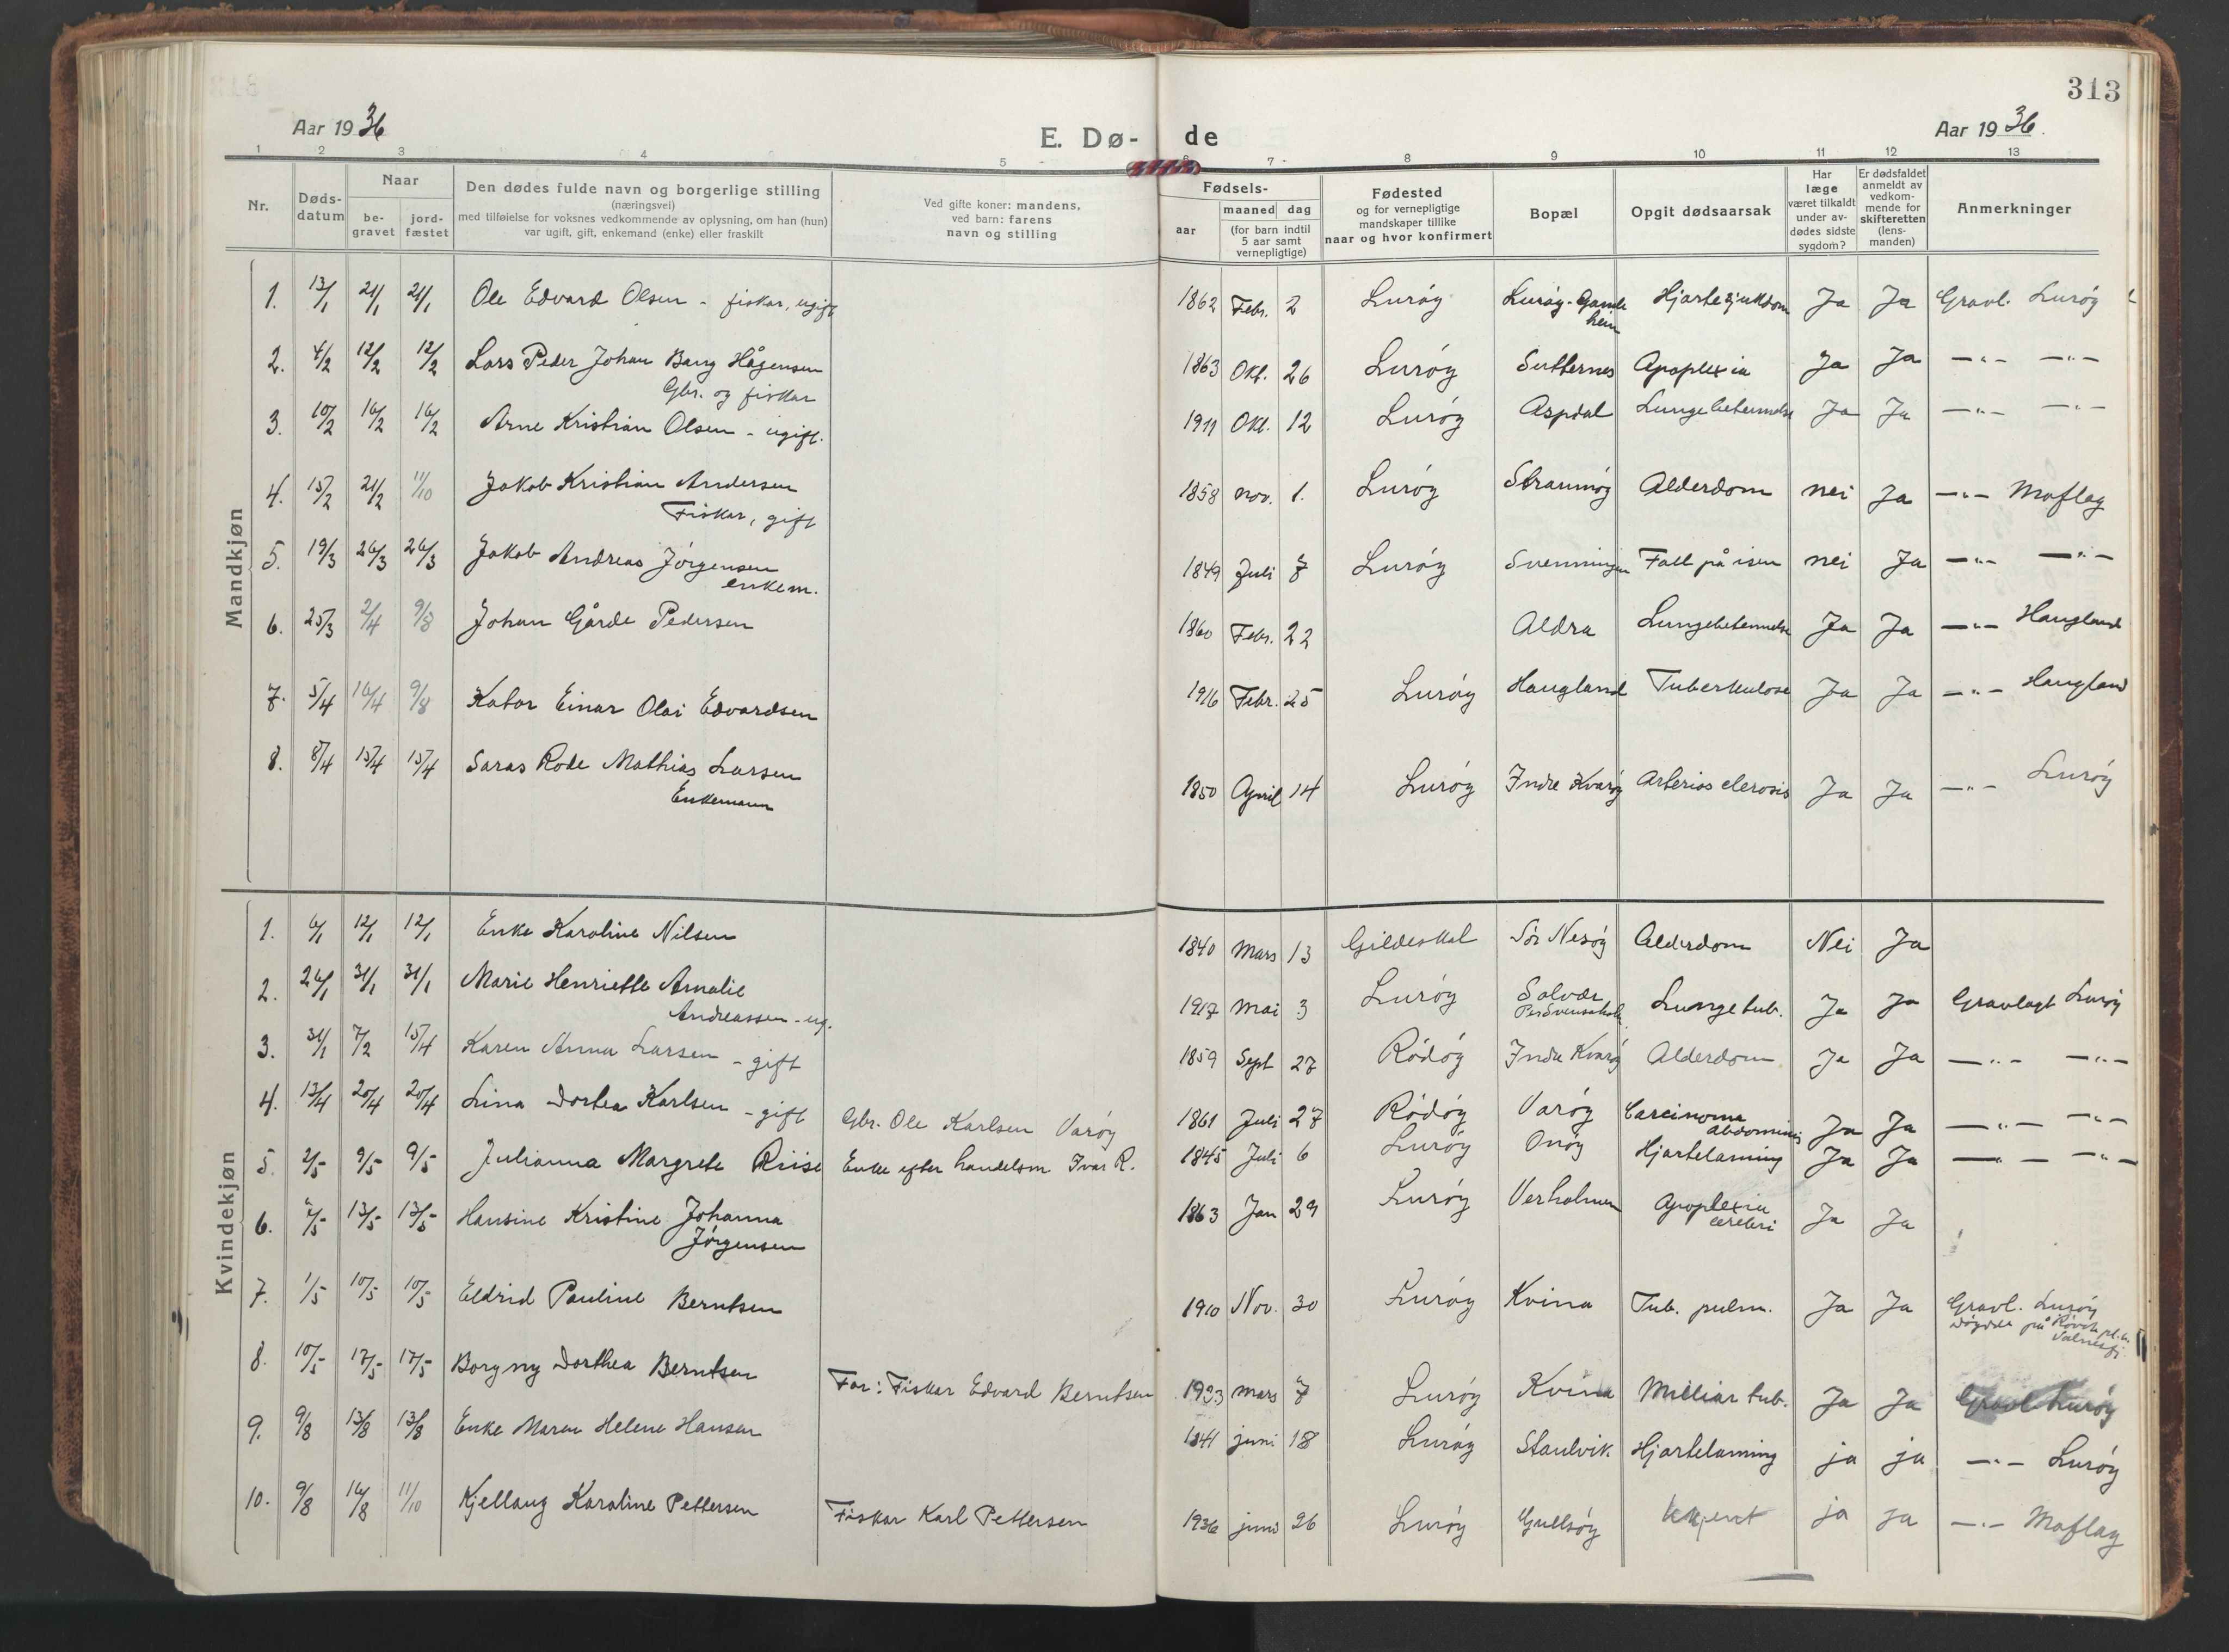 313
Aar 1936
E. Dø-de
Aar 1936.
1 2 3 4 5 6 7 8 9 10 11 12 13
Nr.
Døds-datum
Naar
be-gravet
jord-fæstet
Den dødes fulde navn og borgerlige stilling
(næringsvei)
med tilføielse for voksnes vedkommende av oplysning, om han (hun)
var ugift, gift, enkemand (enke) eller fraskilt
Ved gifte koner: mandens,
ved barn: farens
navn og stilling
Fødsels-
aar
maaned dag
(for barn indtil
5 aar samt
vernepligtige)
Fødested
og for vernepligtige
mandskaper tillike
naar og hvor konfirmert
Bopæl
Opgit dødsaarsak
Har
læge
været tilkaldt
under av-
dødes sidste
sygdom?
Er dødsfaldet
anmeldt av
vedkom-
mende for
skifteretten
(lens-
manden)
Anmerkninger
Mandkjøn
1. 13/1 21/1 21/1 Ole Edvard Olsen - fiskar, ugift 1862 Febr. 2 Lurøy Lurøy- Hjartesjukdom Ja Ja Gravl. Lurøy
2. 4/2 12/2 12/2 Lars Peder Johan Bang Hågensen 1863 Okt. 26 Lurøy Sutternes Apoplexia Ja Ja —"— —"—
Gbr. og fiskar
3. 10/2 16/2 16/2 Arne Kristian Olsen - ugift. 1911 Okt. 12 Lurøy Aspdal Lungebetennelse Ja Ja —"— —"—
4. 15/2 21/2 11/10 Jakob Kristian Andersen 1858 nov. 1. Lurøy Straumøy Alderdom nei Ja —"— Moflag
Fiskar, gift
5. 19/3 26/3 26/3 Jakob Andreas Jørgensen 1849 Juli 7 Lurøy Svenningen Fall på isen nei Ja —"— —"—
enkem.
6. 25/3 2/4 9/8 Johan Gårde Pedersen 1860 Febr. 22 Aldra Lungebetennelse Ja Ja —"— Haugland
7. 5/4 16/4 9/8 Kator Einar Olai Edvardsen 1916 Febr. 25 Lurøy Haugland Tuberkulose Ja Ja —"— Haugland
8. 8/4 15/4 15/4 Saras Rode Mathias Larsen 1850 April 14 Lurøy Indre Kvarøy Arterios clerosis Ja Ja —"— Lurøy
Enkemann
Kvindekjøn
1. 6/1 12/1 12/1 Enke Karoline Nilsen 1840 Mars 13 Gildeskal Sør Nesøy Alderdom Nei Ja
2. 26/1 31/1 31/1 Marie Henriette Amalie 1917 Mai 3 Lurøy Solvær Lunge tub. Ja Ja Gravlagt Lurøy
Andreassen - ug.
3. 31/1 7/2 15/4 Karen Anna Larsen - gift 1859 Sept 27 Rødøy Indre Kvarøy Alderdom Ja Ja —"— —"—
4. 13/4 20/4 20/4 Lina Dortea Karlsen - gift Gbr. Ole Karlsen Varøy 1861 Juli 27 Rødøy Varøy Carcinoma abdominis Ja Ja —"— —"—
5. 2/5 9/5 9/5 Julianna Margrete Riise Enke efter handelsm Ivar R. 1845 Juli 6 Lurøy Onøy Hjartelaming Ja Ja —"— —"—
6. 7/5 13/5 13/5 Hansine Kristine Johanna 1863 Jan 29 Lurøy Verholmen Apoplexia cerebri Ja Ja
Jørgensen
7. 1/5 10/5 10/5 Eldrid Pauline Berntsen 1910 Nov. 30 Lurøy Kvina Tub. pulm. Ja Ja Gravl. Lurøy
8. 10/5 17/5 17/5 Borgny Dorthea Berntsen Far: Fiskar Edvard Berntsen 1923 mars 7 Lurøy Kvina Milliar tub. Ja Ja Gravl Lurøy
9. 9/8 13/8 13/8 Enke Maren Helene Hansen 1841 juni 18 Lurøy Stuvlvik Hjartelamning ja ja —"— Lurøy
10. 9/8 16/8 11/10 Kjellaug Karoline Pettersen Fiskar Karl Pettersen 1936 juni 26 Lurøy Gullsøy ukjent ja ja —"— Moflag